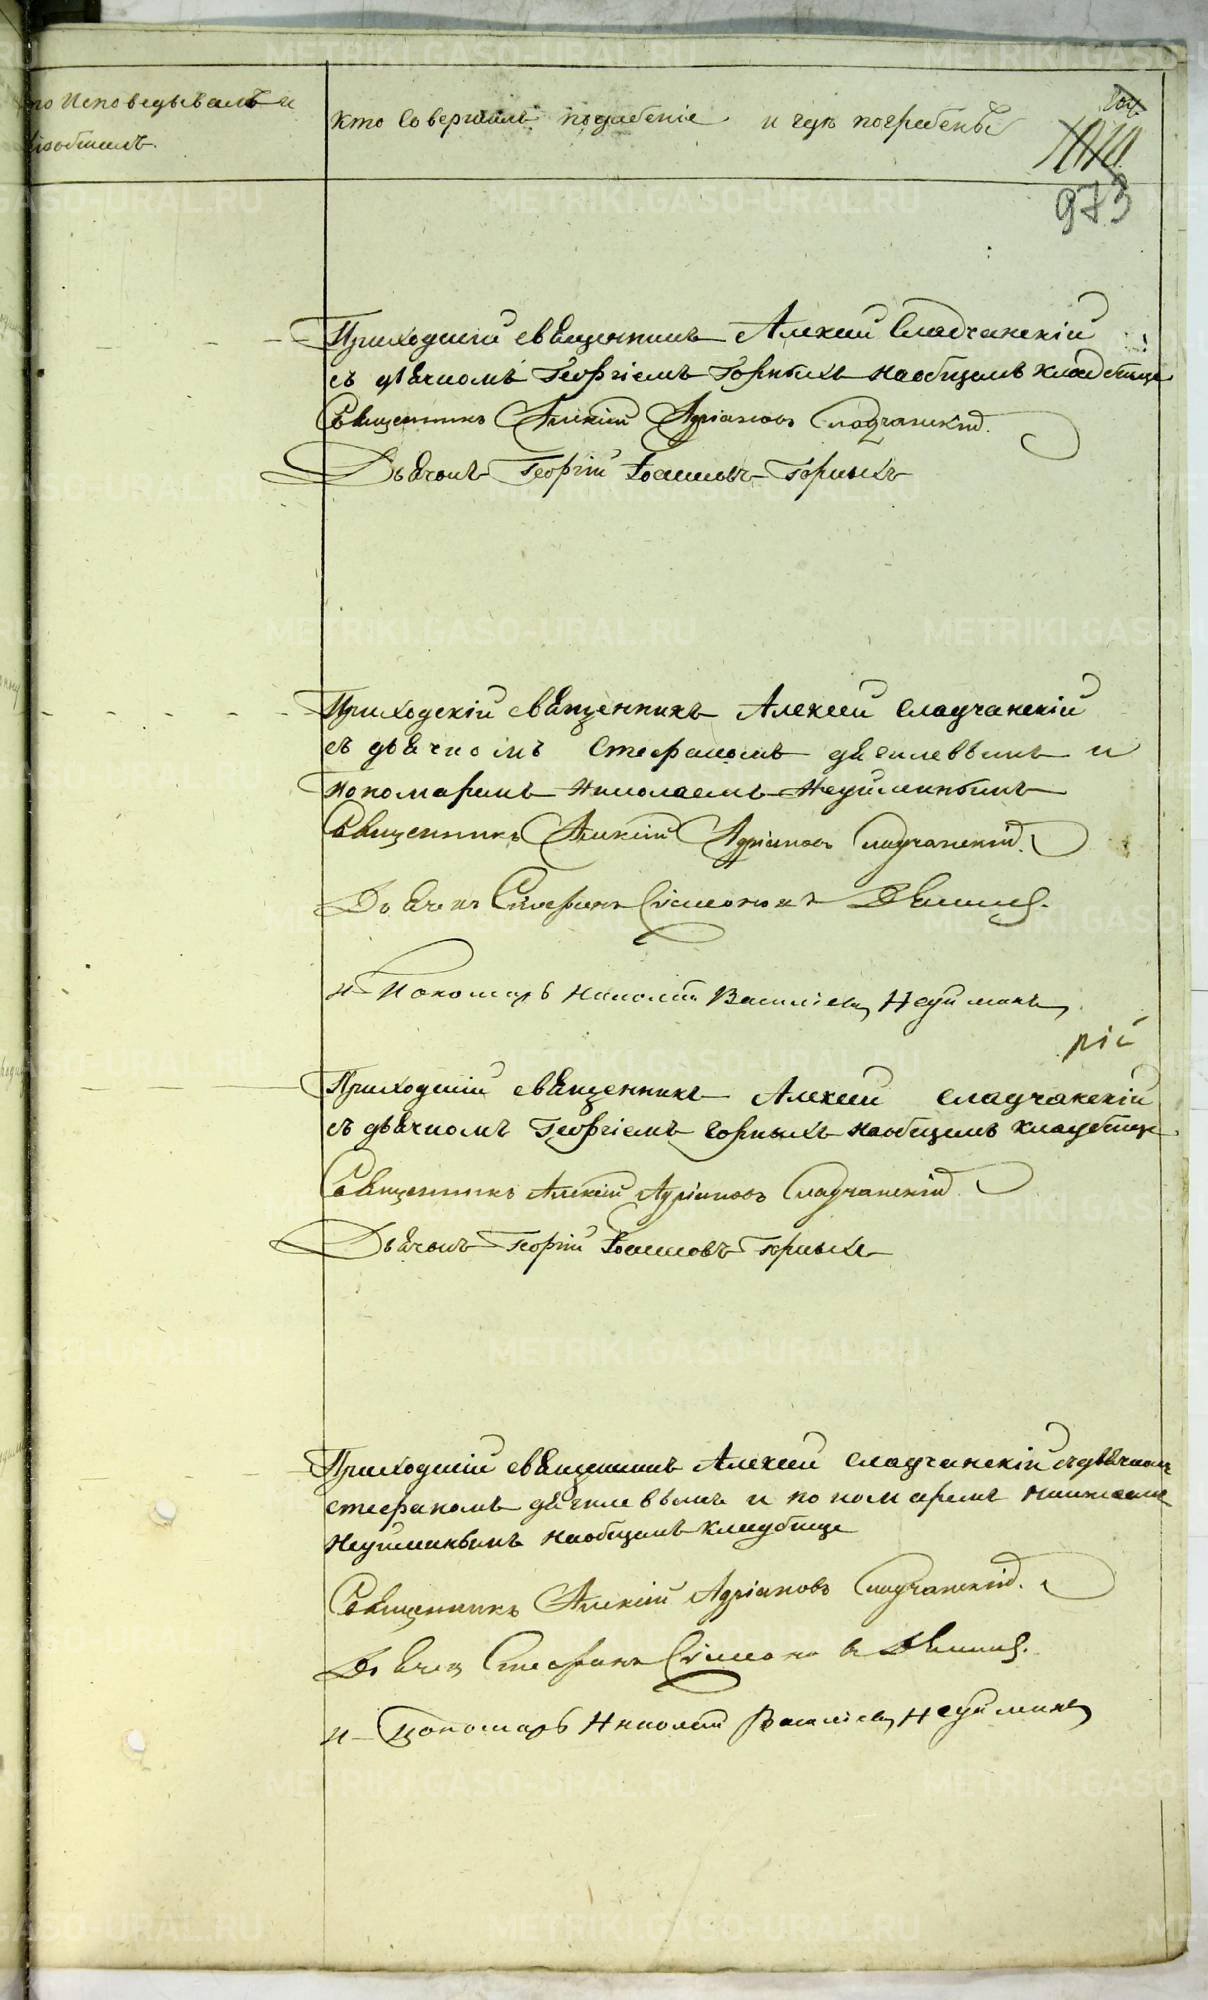 то Исповедывалъ и
пріобщилъ.
Кто Совершилъ погребеніе и гдѣ погребены
1010
973
Приходскій священникъ Алексій Сладчанскій
съ дьячкомъ Георгіемъ Горныхъ на общемъ кладбище
Священникъ Алексій Адріановъ Сладчанскій.
Дьячокъ Георгій Іоанновъ Горныхъ
Приходскій священникъ Алексій Сладчанскій
съ дьячкомъ Стефаномъ и
пономаремъ Николаемъ Неуйминымъ
Священникъ Алексій Адріановъ Сладчанскій.
Дьячекъ Стефанъ Сімеоновъ
и Пономарь Николай Василіевъ Неуйминъ
рій
Приходскій священникъ Алексій Сладчанскій
съ дьячкомъ Георгіемъ Горныхъ на общемъ кладбище
Священникъ Алексій Адріановъ Сладчанскій
Дьячокъ Георгій Іоанновъ Горныхъ
Приходскій священникъ Алексій Сладчанскій съ дьячкомъ
Стефаномъ и пономаремъ Николаемъ
Неуйминымъ на общемъ кладбище
Священникъ Алексій Адріановъ Сладчанскій.
Дьячекъ Стефанъ Сімеоновъ
и Пономарь Николай Василіевъ Неуйминъ
METRIKI.GASO-URAL.RU